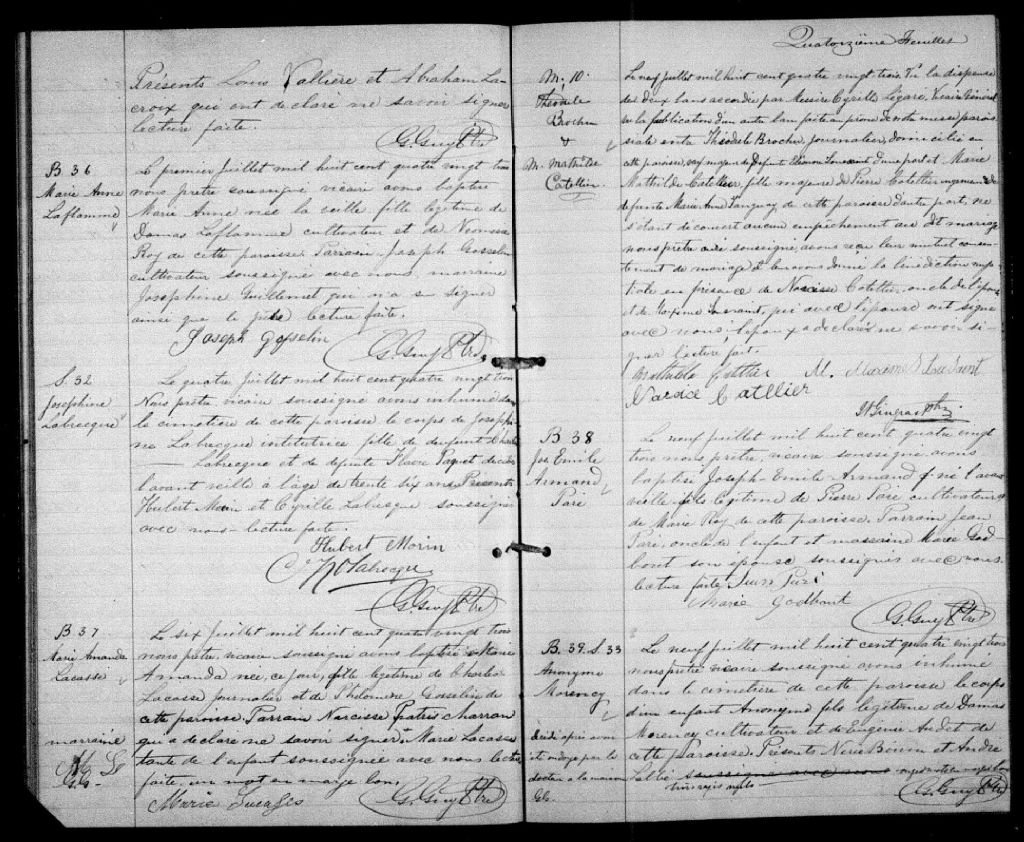 Présents Louis Vallière et Abraham La-
croix qui ont declaré ne savoir signer
lecture faite.
G. Guy Ptre
B 36
Marie Anne
Laflamme
Le premier juillet mil huit cent quatre vingt trois
nous prêtre soussigné vicaire avons baptisé
Marie Anne née la veille fille legitime de
Damas Laflamme cultivateur et de
Roy de cette paroisse. Parrain, Joseph Gosselin
cultivateur soussigné avec nous, marraine
Josephine Guillemet qui n'a su signer
ainsi que le père lecture faite.
Joseph Gosselin
G. Guy Ptre
S. 32
Josephine
Labrecque
Le quatre juillet mil huit cent quatre vingt trois
Nous prêtre vicaire soussigné avons inhumé dans
le cimetière de cette paroisse le corps de Josephi-
ne Labrecque institutrice fille de defunt
Labrecque et de defunte Paquet décédée
l'avant veille à l'âge de trente six ans. Présents
Hubert et Cyrille Labrecque soussignés
avec nous lecture faite.
Hubert Morin
Labrecque
G. Guy Ptre
B 37
Marie Amanda
Lacasse
marraine
G.G.
Le six juillet mil huit cent quatre vingt trois
nous prêtre vicaire soussigné avons baptisé Marie
Amanda née ce jour, fille legitime de Charles
Lacasse journalier et de Philomène Gosselin de
cette paroisse Parrain Narcisse
qui a declaré ne savoir signer Marie Lacasse
tante de l'enfant soussignée avec nous lecture
faite, un mot en marge bon.
Marie
G. Guy Ptre
Quatorzième Feuillet
M. 10.
Théodule
Brochu
&
M. Mathilde
Catellier
Le neuf juillet mil huit cent quatre vingt trois Vu la dispense
de deux bans accordée par Messire Cyrille Légaré, Vicaire Général
vu la publication d'un autre ban faite au prône de notre messe parois-
siale entre Théodule Brochu, journalier, domicilié en
cette paroisse, majeur de défunt d'une part et Marie
Mathilde Catellier, fille majeure de Pierre Catellier et de
defunte Marie Anne Tanguay de cette paroisse d'autre part, ne
s'étant découvert aucun empêchement au dit mariage
nous prêtre curé soussigné, avons reçu leur mutuel consen-
tement de mariage et leur avons donné la bénédiction nup-
tiale en présence de Narcisse Catellier, oncle de l'épouse
et de qui avec l'épouse ont signé
avec nous l'époux a declaré ne savoir si-
gner lecture faite.
Mathilde Catellier
Narcice Catellier
B 38
Jos Emile
Armand
Paré
Le neuf juillet mil huit cent quatre vingt
trois nous prêtre, vicaire soussigné, avons
baptisé Joseph-Emile Armand né l'avant
veille, fils légitime de Pierre Paré cultivateur et
de Marie Roy de cette paroisse. Parrain Jean
Paré, oncle de l'enfant et marraine Marie God-
bout son épouse soussignés avec nous
lecture faite. Jean Paré
Marie Godbout
G. Guy Ptre
B. 39. S. 33
Anonyme
Morency
décédé après avoir
été ondoyé par le
docteur à la maison
G.G.
Le neuf juillet mil huit cent quatre vingt trois
nous prêtre vicaire soussigné avons inhumé
dans le cimetière de cette paroisse le corps
d'un enfant Anonyme fils légitime de Damas
Morency cultivateur et de Eugénie Audet de
cette paroisse. Présents et André
soussignés avec nous
G. Guy Ptre